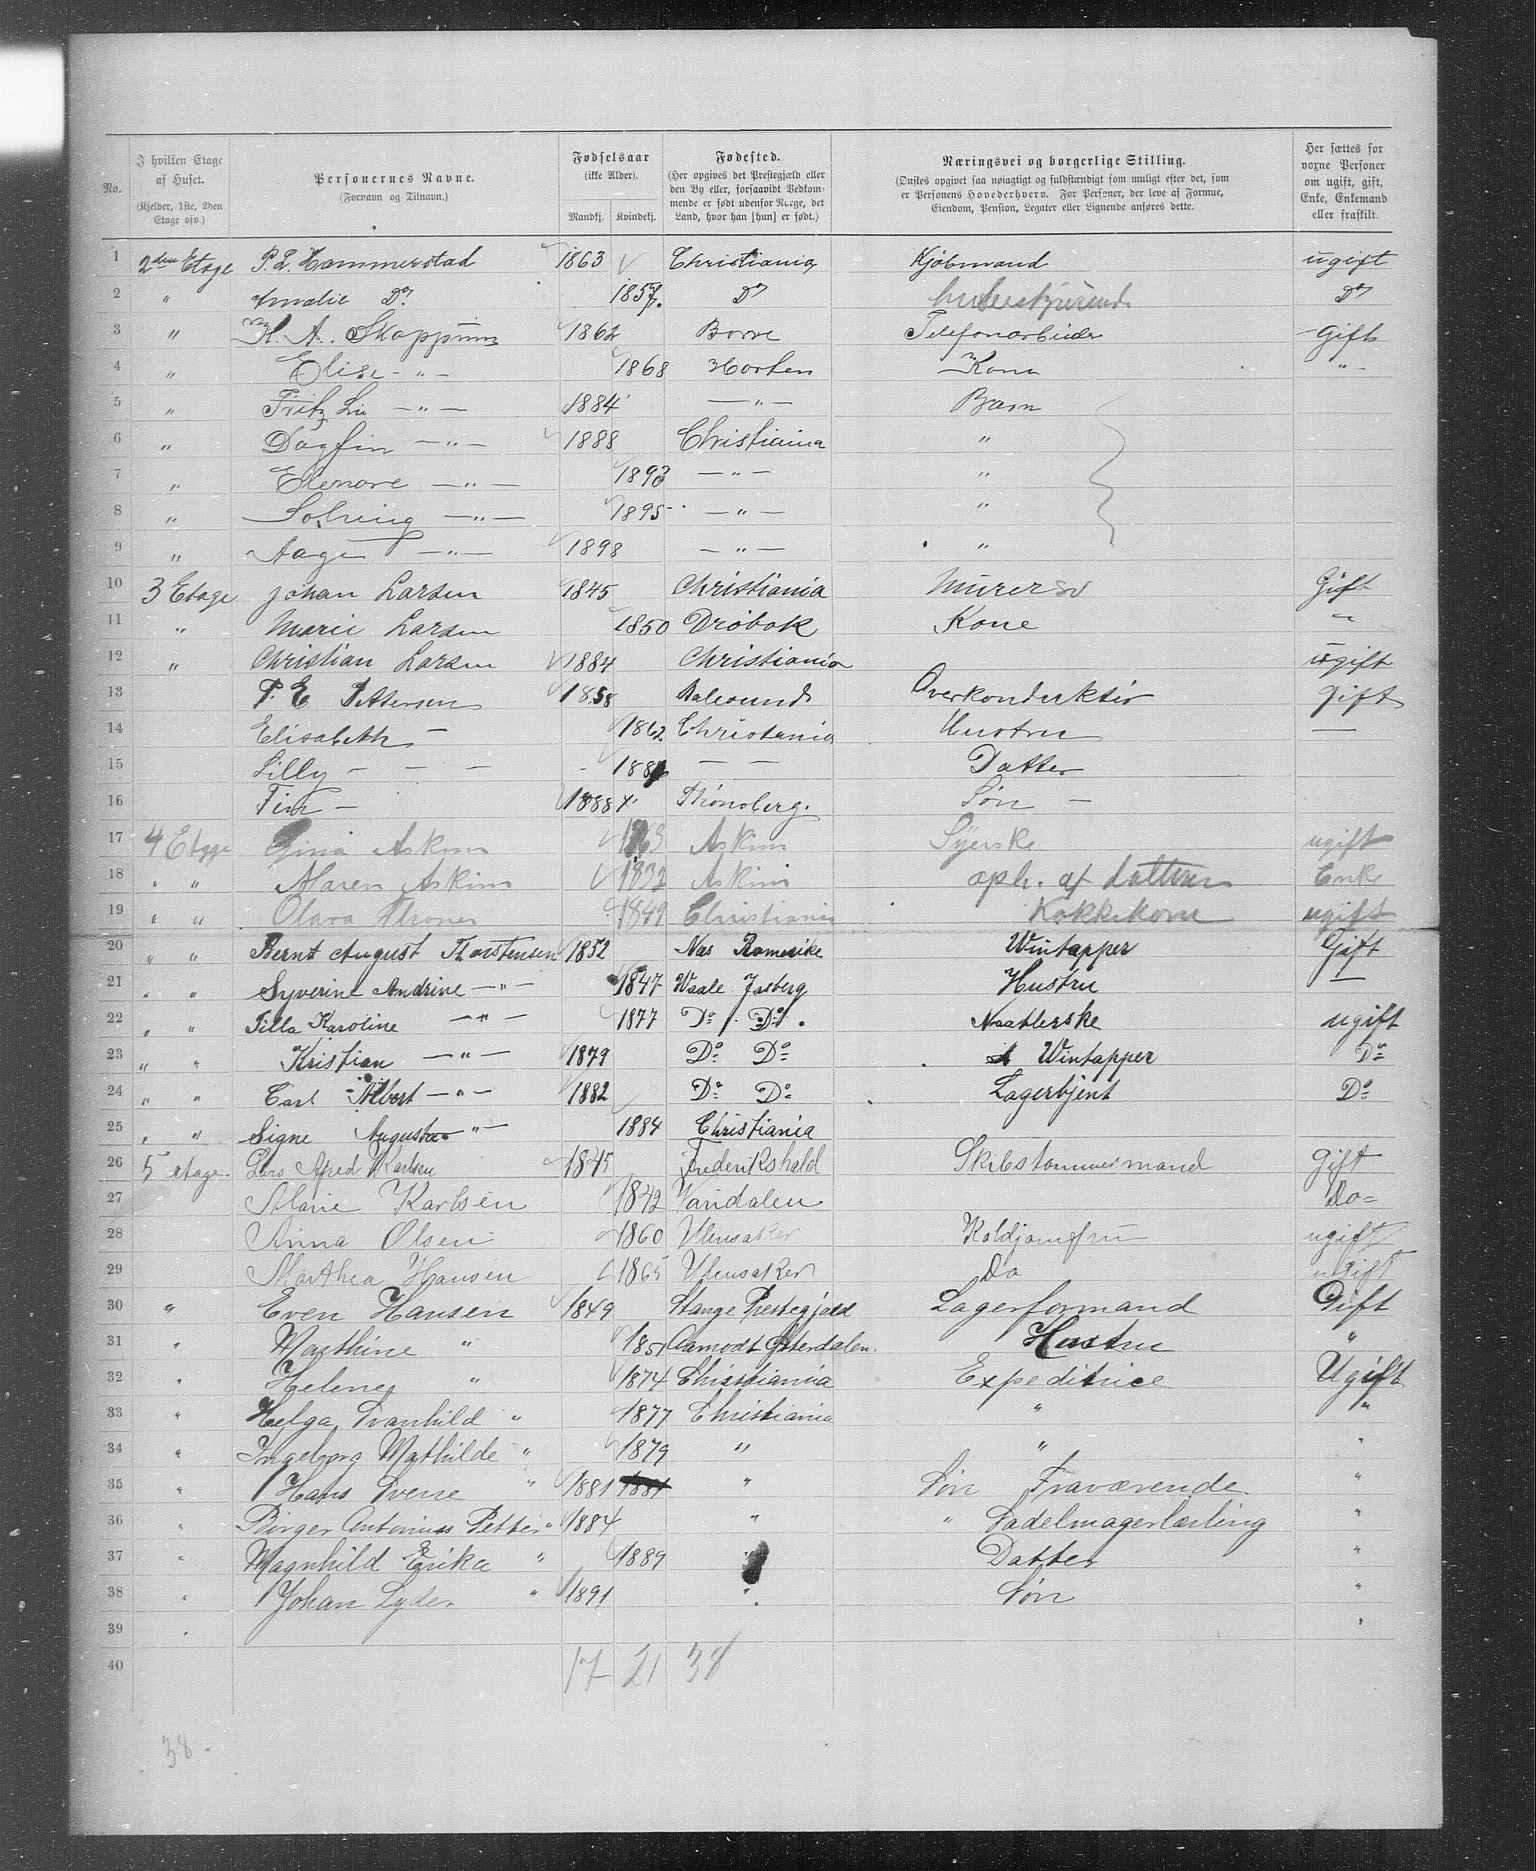 No. I hvilken Etage af Huset. (Kjelder, 1ste, 2den Etage osv.) Personernes Navne. (Fornavn og Tilnavn.) Fødselsaar (ikke Alder). Mandkj. Kvindekj. Fødested. (Her opgives det Prestegjæld eller den By eller, forsaavidt Vedkommende er født udenfor Norge, det Land, hvor han [hun] er født.) Næringsvei og borgerlige Stilling. (Ønskes opgivet saa nøiagtigt og fuldstændigt som muligt efter det, som er Personens Hovederhverv. For Personer, der leve af Formue, Eiendom, Pension, Legater eller Lignende anføres dette. Her sættes for voxne Personer om ugift, gift, Enke, Enkemand eller fraskilt.
1 2den Etage P. L. Hammerstad 1863 Christiania Kjøbmand ugift
2 " Amalie Do 1857. Do Do
3 " H. A. Skoppum 1862 Borre Telefonarbeider Gift
4 " Elise - " - 1868 Horten Kone "
5 " Fritz Li - " - 1884 - " - Barn
6 " Dagfin - " - 1888 Christiania "
7 " Elenore - " - 1893 - " - "
8 " Solveig - " - 1895 - " - "
9 " Aage - " - 1898 - " - "
10 3 Etage Johan Larsen 1845 Christiania Murersv Gift
11 " Marie Larsen 1850 Drøbak Kone "
12 " Christian Larsen 1884 Christiania ugift
13 P. E. Pettersen 1858 Aalesund Overkonduktør gift
14 Elisabeth - 1862 Christania Hustru -
15 Lilly - - - - - Datter
16 - 1888 Thønsberg. Søn -
17 4 Etage Gina Askim Askim Syerske ugift
18 " " Maren Askim 1832 Askim oph. af datteren Enke
19 " " Olava Throner 1849 Christiania Kokkekone ugift
20 " " Bernt August Thorstensen 1852 Næs Romerike Wintapper Gift
21 " " Syverine Andrine - " - 1847 Waale Jarlsberg Hustru -
22 " " Tilla Karoline - " - 1877 Do Do Naatlerske ugift
23 " " Kristian - " - 1879 Do Do Wintapper Do
24 " " Carl Albert - " - 1882 Do Do Lagerbjent Do
25 " " Signe Augusta " - 1884 Christiania
26 5 etage. Lars Alfred Karlsen 1845 Frederikshald Skibstømmermand Gift
27 Marie Karlsen 1842 Do
28 Anna Olsen 1860 Ullensaker Koldjomfru ugift
29 Marthea Hansen 1865 Ullensaker Do ugift
30 " Even Hansen 1849 Stange Prestegjæld Lagerformand Gift
31 " Marthine " 1851 Aamodt Østerdalen. Hustru "
32 " Helene " 1874 Christiania Expeditrice Ugift
33 " Helga Svanhild " 1877 Christiania " "
34 " Ingeborg Mathilde " 1879 " " "
35 " Hans Sverre " 1881 1881 " Søn Fraværende "
36 " Birger Antonius Petter " 1884 " " Sadelmagerlærling "
37 " Magnhild Erika " 1889 " Datter "
38 " Johan Lyder " 1891 " Søn "
39 " "
40 17 21 38
38